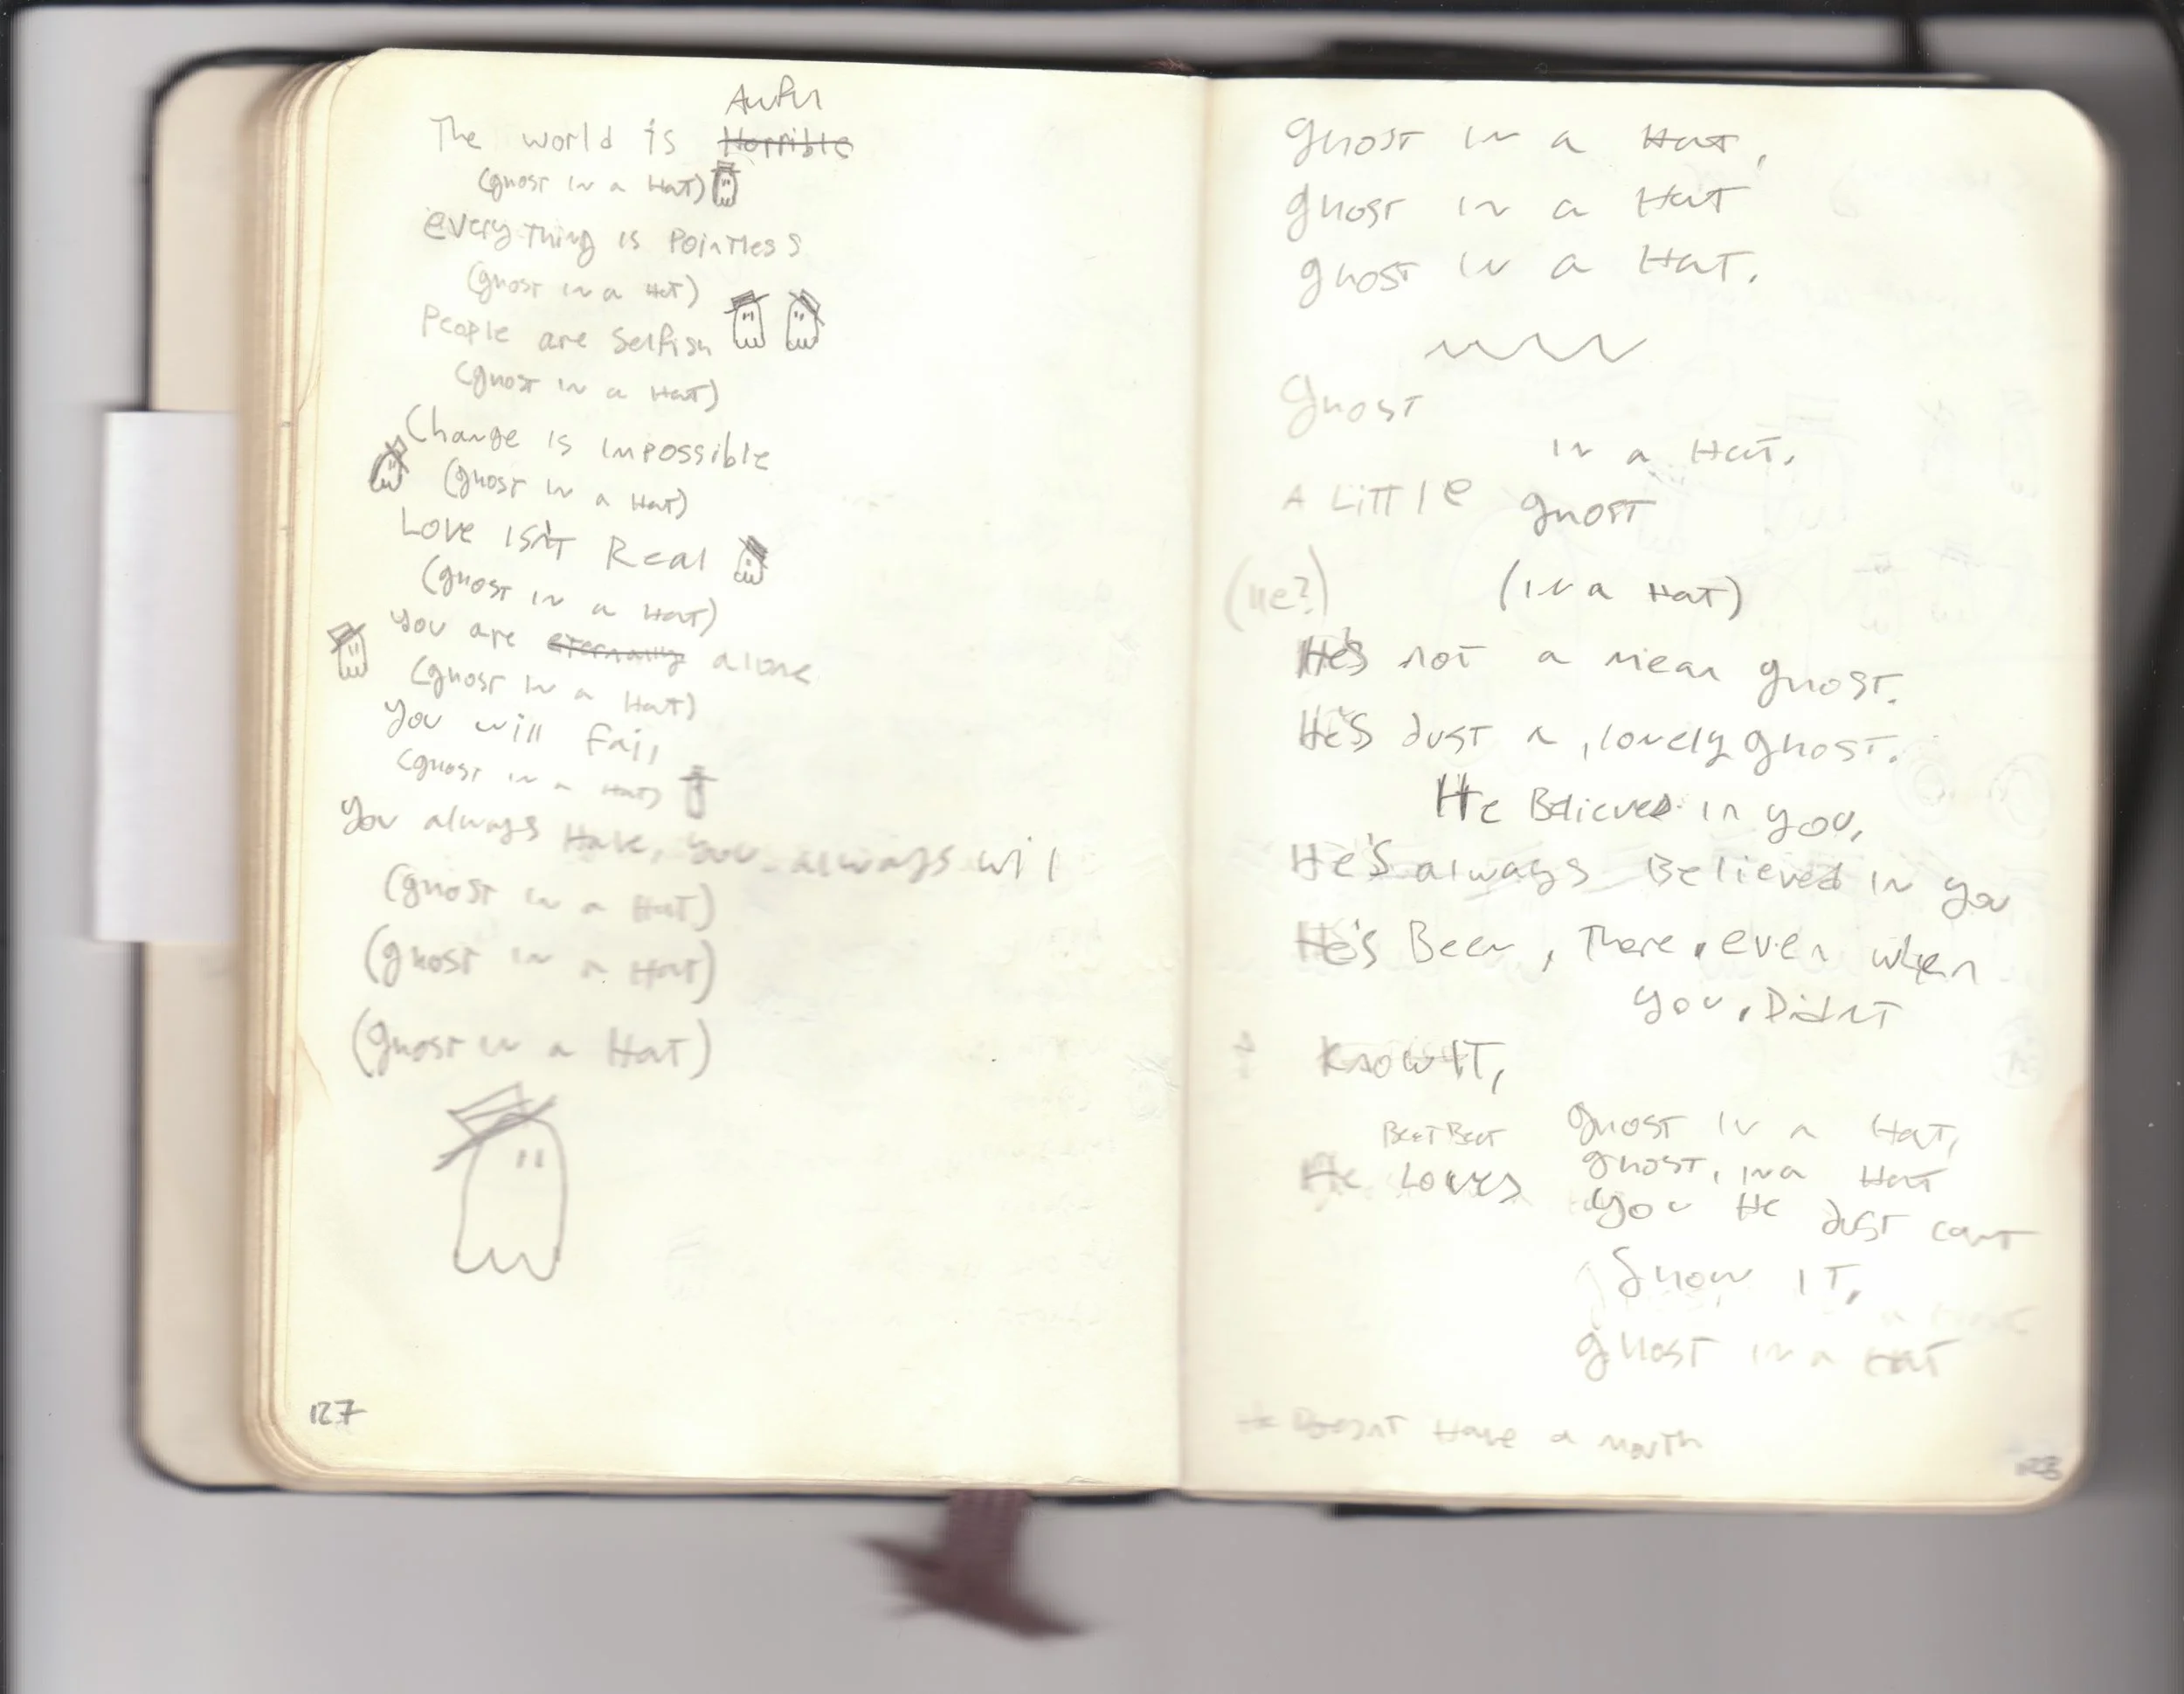 Awful
The world is Horrible
(ghost in a Hat)
everything is Pointless
(ghost in a Hat)
People are Selfish
(ghost in a Hat)
Change is impossible
(ghost in a Hat)
Love isn't Real
(ghost in a Hat)
you are eternally alone
(ghost in a Hat)
you will fail
(ghost in a Hat)
you always Have, you always will
(ghost in a Hat)
(ghost in a Hat)
(ghost in a Hat)
127
ghost in a Hat,
ghost in a Hat
ghost in a Hat.
ghost
in a Hat.
A Little ghost
(he?) (in a Hat)
He's not a mean ghost.
He's Just a, lonely ghost.
He Believes in you,
He's always Believed in you
He's Been, There, even when
you, Didnt
Know IT,
Beat Beat ghost in a Hat,
ghost, in a Hat
He Loves you He Just cant
Show IT,
ghost in a Hat
He Doesnt Have a mouth
128